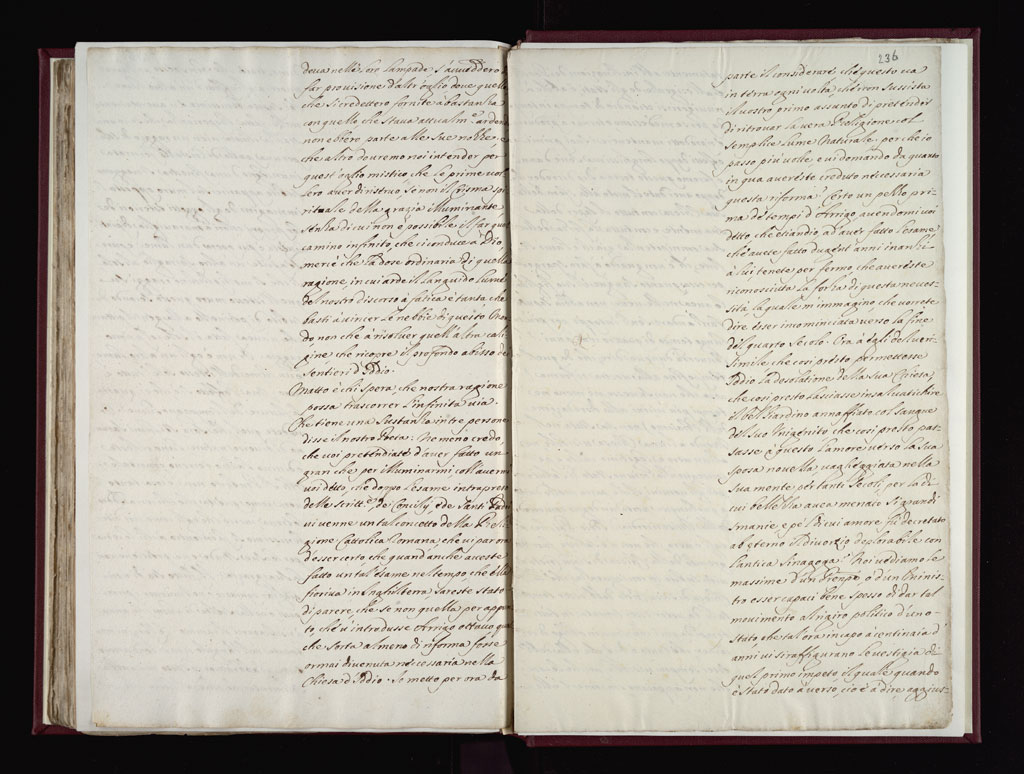 deva nelle loro lampade. S'avviddero
far provisione d'altr'oglio dove quelle
che si credettero fornite à bastanza
con quello che stava attualm.e ardendo
non ebbero parte alle sue nozze, e
che altro dovremo noi intender per
quest'oglio mistico che le prime vol
lero aver di riserva se non il Crisma spi
rituale della grazia illuminante,
senza di cui non è possibile il far quel
camino infinito, che ci conduce à Dio,
mercè che la dose ordinaria di quella
ragione, in cui arde il languido lume
del nostro discorso à fatica è tanta che
basti à vincer le nebbie di questo Mon
do non che à risolver quell'altra cali
gine che ricopre il profondo abisso de
sentieri d'Iddio.
Matto è chi spera, che nostra ragione
possa trascorrer l'infinita via
Che tiene una Sustanza in tre persone
disse il nostro Poeta. Nemeno credo,
che voi pretendiate d'aver fatto un
gran che per illuminarmi coll'avermi
voi detto, che doppo l'esame intrapreso
delle scritt.e de Concilij, e de Santi Padri
vi venne un tal concetto della Reli
gione Cattolica Romana, che vi par ora
d'esser certo che quand'anche aveste
fatto un tal esame nel tempo, che ella
fioriva in Inghilterra, sareste stato
di parere, che se non quella per appun
to, che v'introdusse Arrigo ottavo qual
che sorta almeno di riforma fosse
ormai divenuta necessaria nella
Chiesa d'Iddio. Io metto per ora da
236
parte il considerare, che questo va
in terra ogni volta, che non sussista
il vostro primo assunto di pretender
di ritrovar la vera Religione col
semplice lume Naturale, perche io
passo più oltre e vi domando da quanto
in qua avereste creduto necessaria
questa riforma? Certo un pezzo pri
ma de' tempi d'Arrigo avendomi voi
detto che etiandio, ad aver fatto l'esame
ch'avete fatto dugent'anni inanzi
à lui tenete per fermo, che avereste
riconosciuta la forza di questa neces-
sità, la quale m'immagino, che vorrete
dire esser incominciata verso la fine
del quarto secolo. Ora à tali del veri
simile che così presto permettesse
Iddio la desolatione della sua Chiesa,
che così presto lasciasse insalvatichire
il bel Giardino annaffiato col sangue
del suo Unigenito che così presto pas-
sasse à questo l'amore verso la sua
sposa novella vagheggiata nella
sua mente per tanti secoli, per la di
cui bellezza avea menato sì grandi
smanie e pe'l di cui amore fu decretato
ab eterno il divorzio deplorabile con
l'antica Sinagoga? Noi vediamo le
massime d'un Principe, o d'un Minis
tro esser capaci bene spesso di dar tal
movimento al ragiro politico d'uno
stato che tal'ora in capo à centinaia d'
anni vi si raffigurano le vestigia di
quel primo impeto il quale quando
è stato dato à verso, cioè à dire aggius-